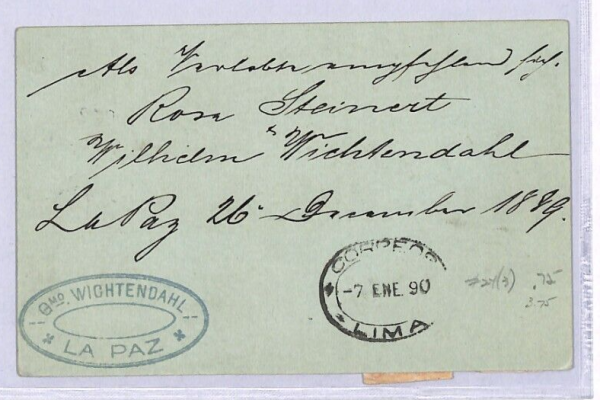 Als Verlobte empfehlen sich.
Rosa Steinert
& Wilhelm Wichtendahl
La Paz 26 December 1889.
CORREOS
-7 ENE. 90
LIMA
GMO. WICHTENDAHL
LA PAZ
.75
3.75